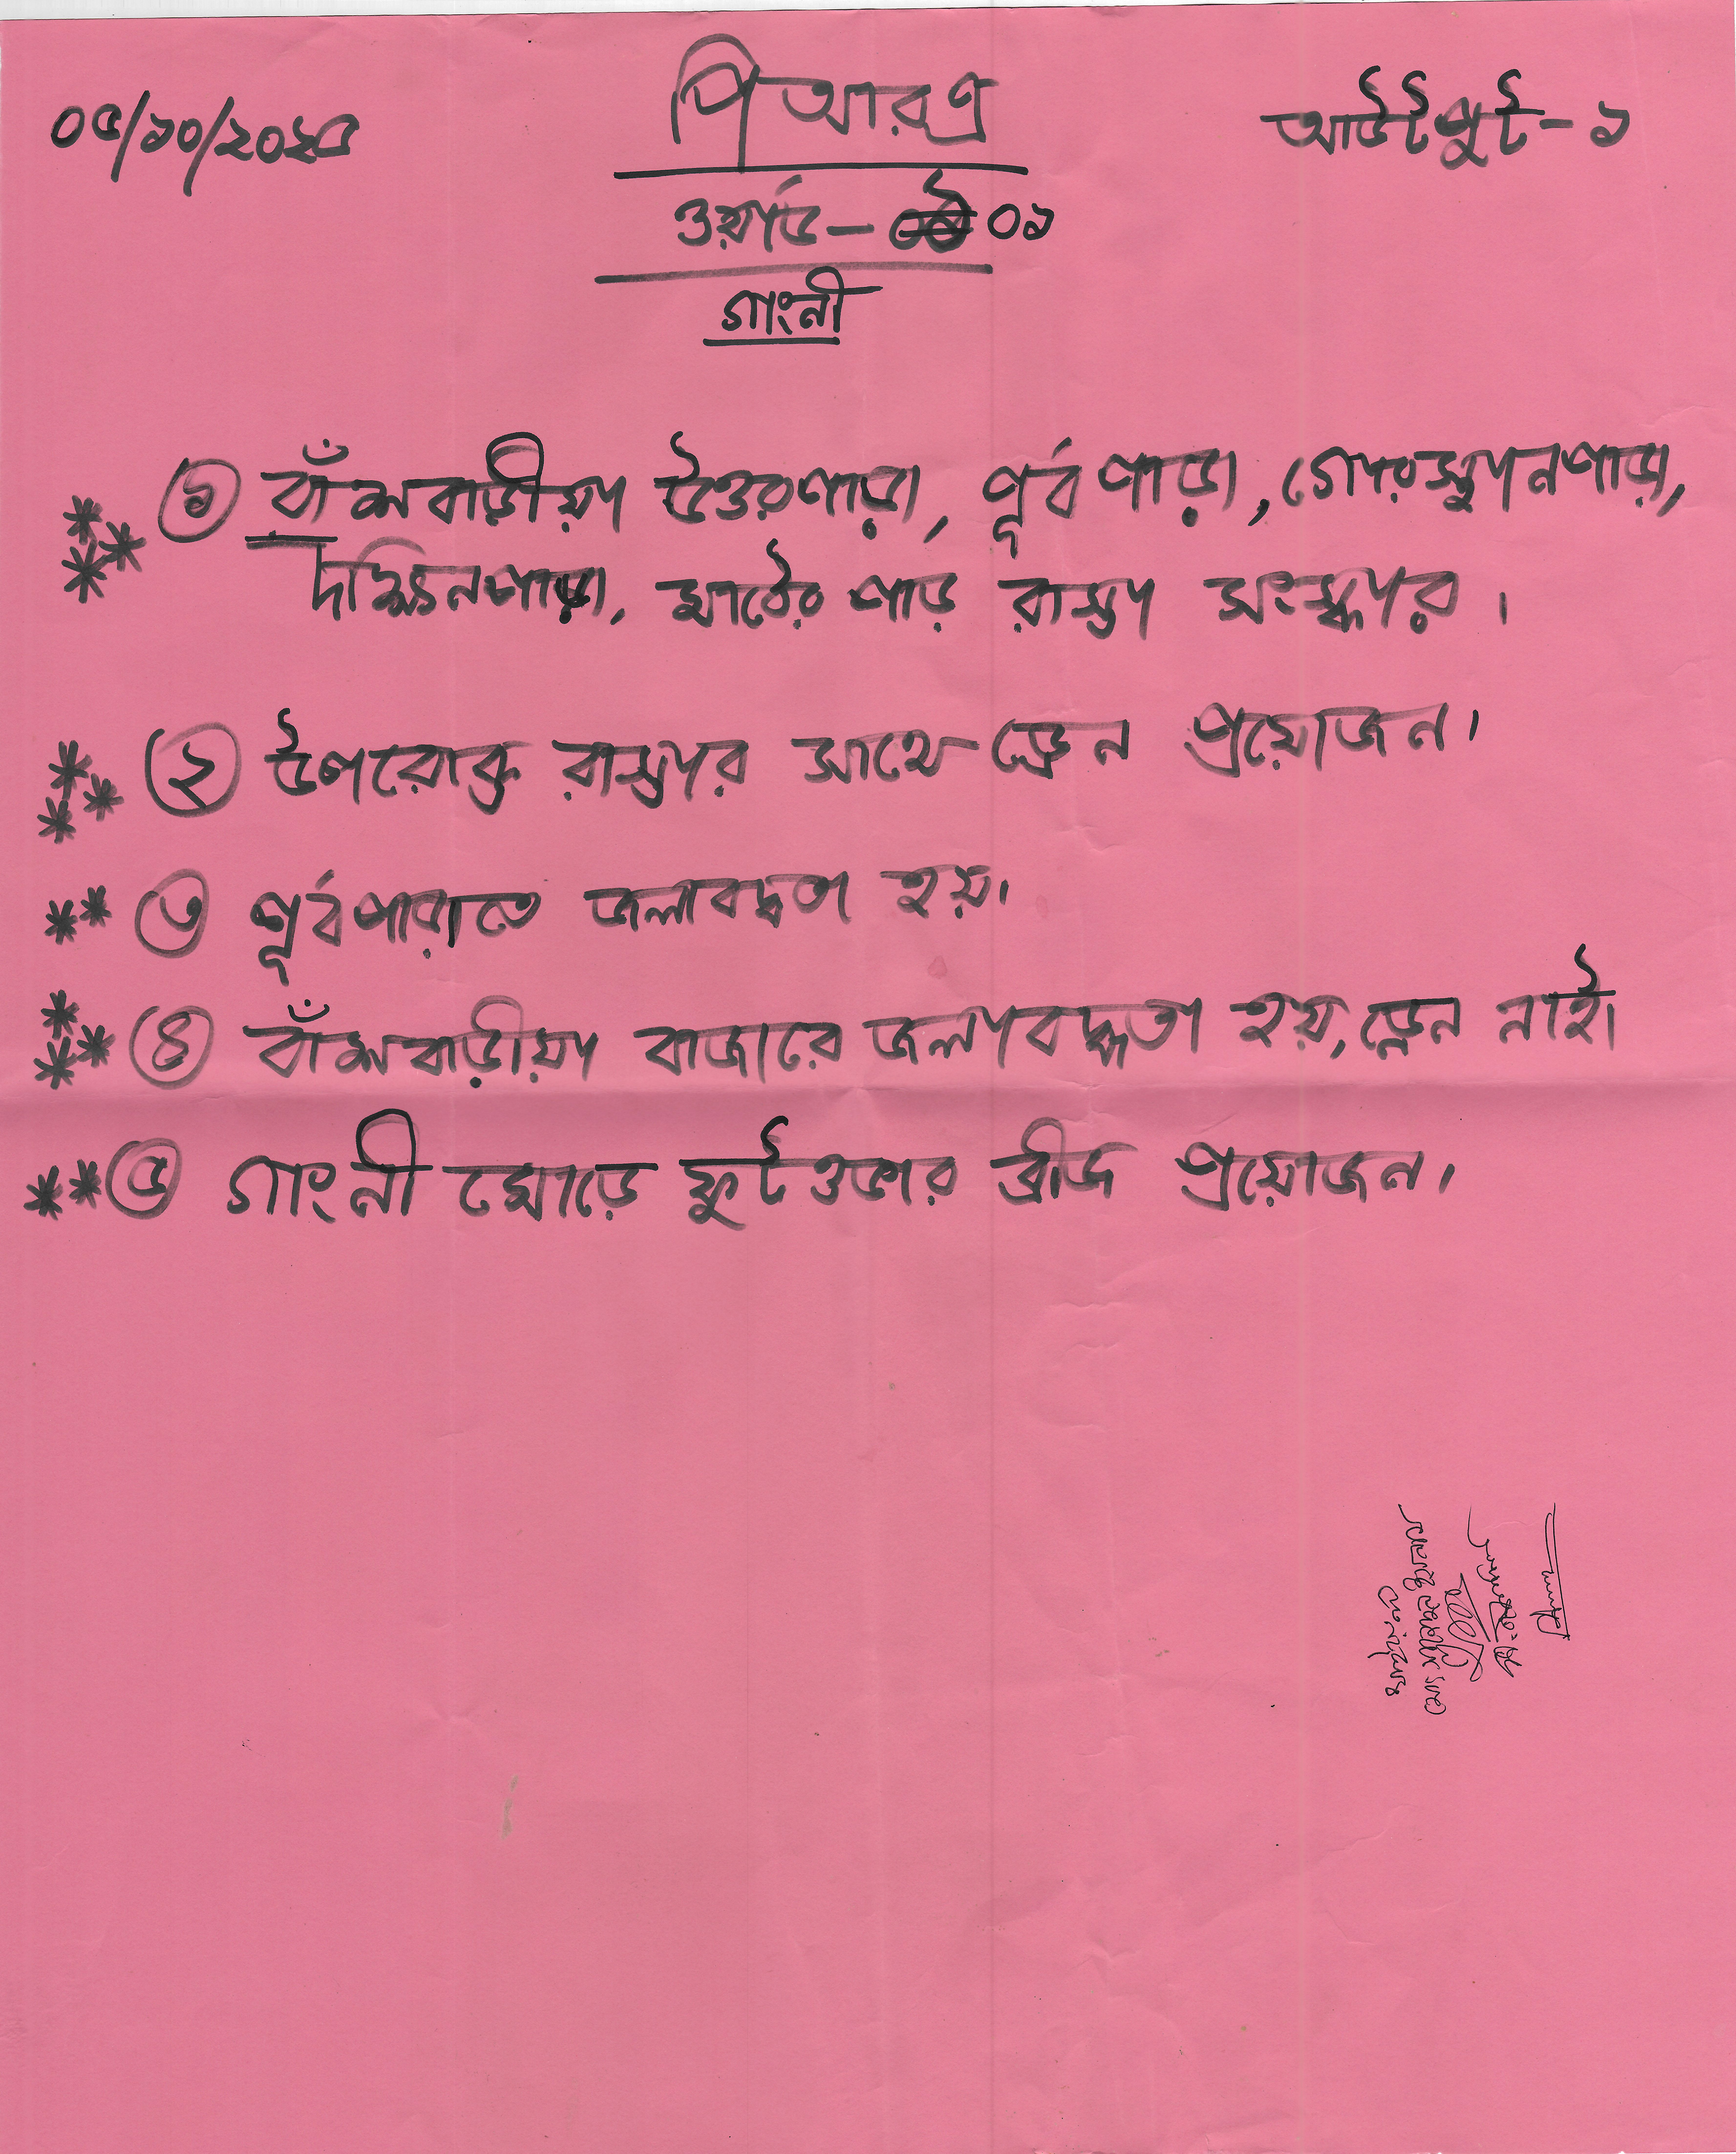 ০৫/১০/২০২৫
পি আর এ
আউটপুট - ১
ওয়ার্ড - ০১
গাংনী
*** ১ বাঁশবাড়ীয়া উত্তরপাড়া, পূর্ব পাড়া, গোরস্থানপাড়া,
দক্ষিনপাড়া, মাঠের পাড় রাস্তা সংস্কার ।
*** ২ উপরোক্ত রাস্তার সাথে ড্রেন প্রয়োজন।
** ৩ পূর্বপারাতে জলাবদ্ধতা হয়।
*** ৪ বাঁশবাড়ীয়া বাজারে জলাবদ্ধতা হয়, ড্রেন নাই।
** ৫ গাংনী মোড়ে ফুটওভার ব্রীজ প্রয়োজন।